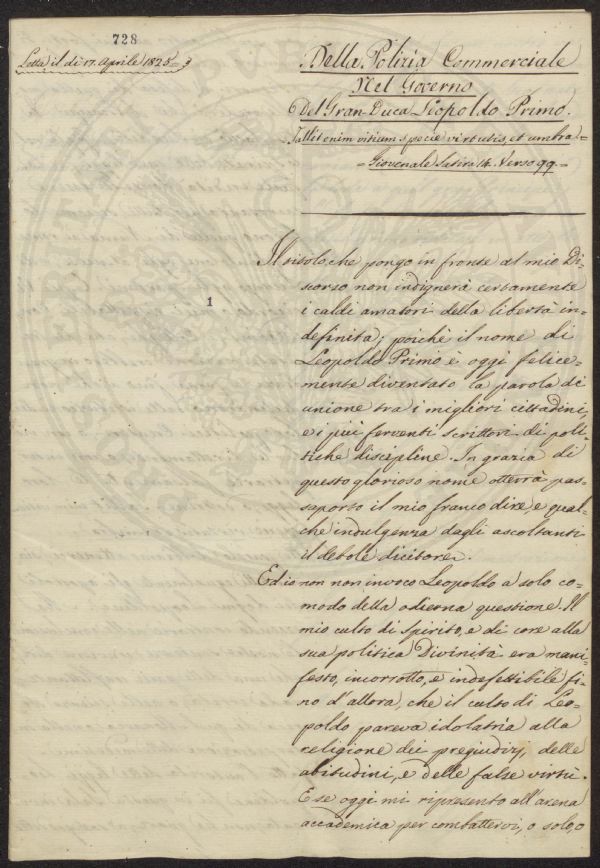 728
Letta il dì 17. Aprile 1825
Della Polizia Commerciale
Nel Governo
Del Gran-Duca Leopoldo Primo.
Fallit enim vitium specie virtutis, et umbra-
-Giovenale Satira 14. Verso 99-
1
Il titolo, che pongo in fronte al mio Di-
scorso non indignerà certamente
i caldi amatori della libertà in-
definita; poichè il nome di
Leopoldo Primo è oggi felice-
mente diventato la parola di
unione tra i migliori cittadini,
e i più ferventi scrittori di poli-
tiche discipline. In grazia di
questo glorioso nome otterrà pas-
saporto il mio franco dire, e qual-
che indulgenza dagli ascoltanti
il debole dicitore.
Ed io non non invoco Leopoldo a solo co-
modo della odierna questione. Il
mio culto di Spirito, e di core alla
sua politica Divinità era mani-
festo, incorrotto, e indefettibile fi-
no d'allora, che il culto di Leo-
poldo pareva idolatria alla
religione dei pregiudizj, delle
abitudini, e delle false virtù.
E se oggi mi ripresento all'arena
accademica per combattervi, o solo, o